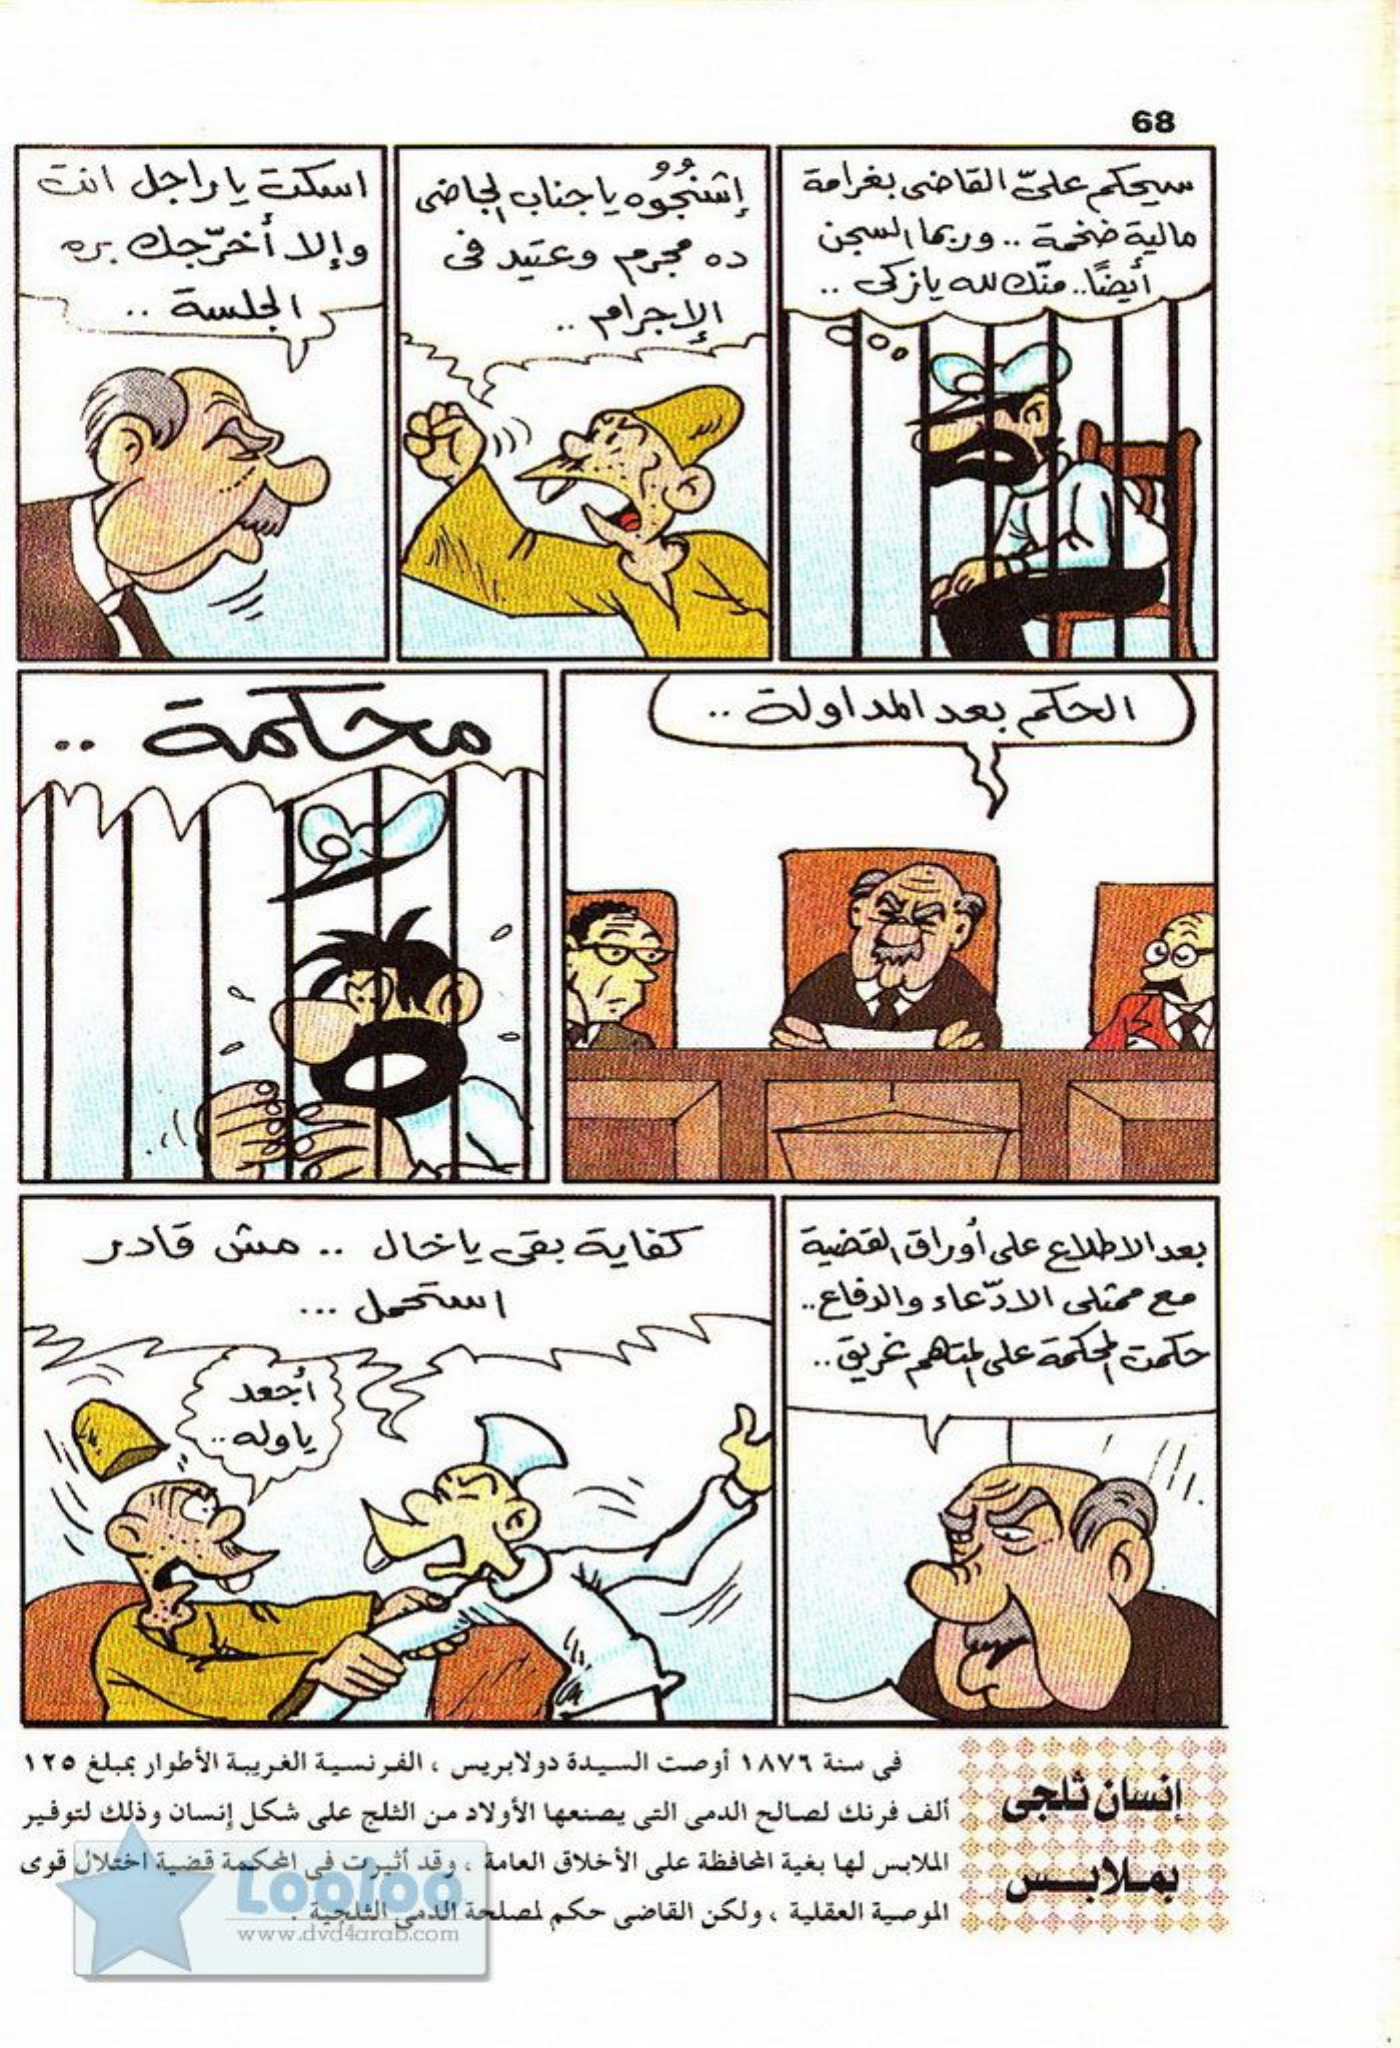 68
سيحكم علىّ القاضى بغرامة
مالية ضخمة .. وربما السجن
أيضًا.. منّك لله يا زكى ..
إشنجُوُه يا جناب الجاضى
ده مجرم وعتيد فى
الإجرام ..
اسكت يا راجل انت
وإلا أخرّجك بره
الجلسة ..
الحكم بعد المداولة ..
محكمة ..
بعد الاطلاع على أوراق القضية
مع ممثلى الادّعاء والدفاع..
حكمت المحكمة على المتاهم غريق..
كفاية بقى يا خال .. مش قادر
استحمل ...
أجعد
ياوله ..
إنسان ثلجى
بمـلابـــس
فى سنة ١٨٧٦ أوصت السيدة دولابريس ، الفرنسية الغريبة الأطوار بمبلغ ١٢٥
ألف فرنك لصالح الدمى التى يصنعها الأولاد من الثلج على شكل إنسان وذلك لتوفير
الملابس لها بغية المحافظة على الأخلاق العامة ، وقد أثيرت فى المحكمة قضية اختلال قوى
الموصية العقلية ، ولكن القاضى حكم لمصلحة الدمى الثلجية .
Looloo
www.dvd4arab.com